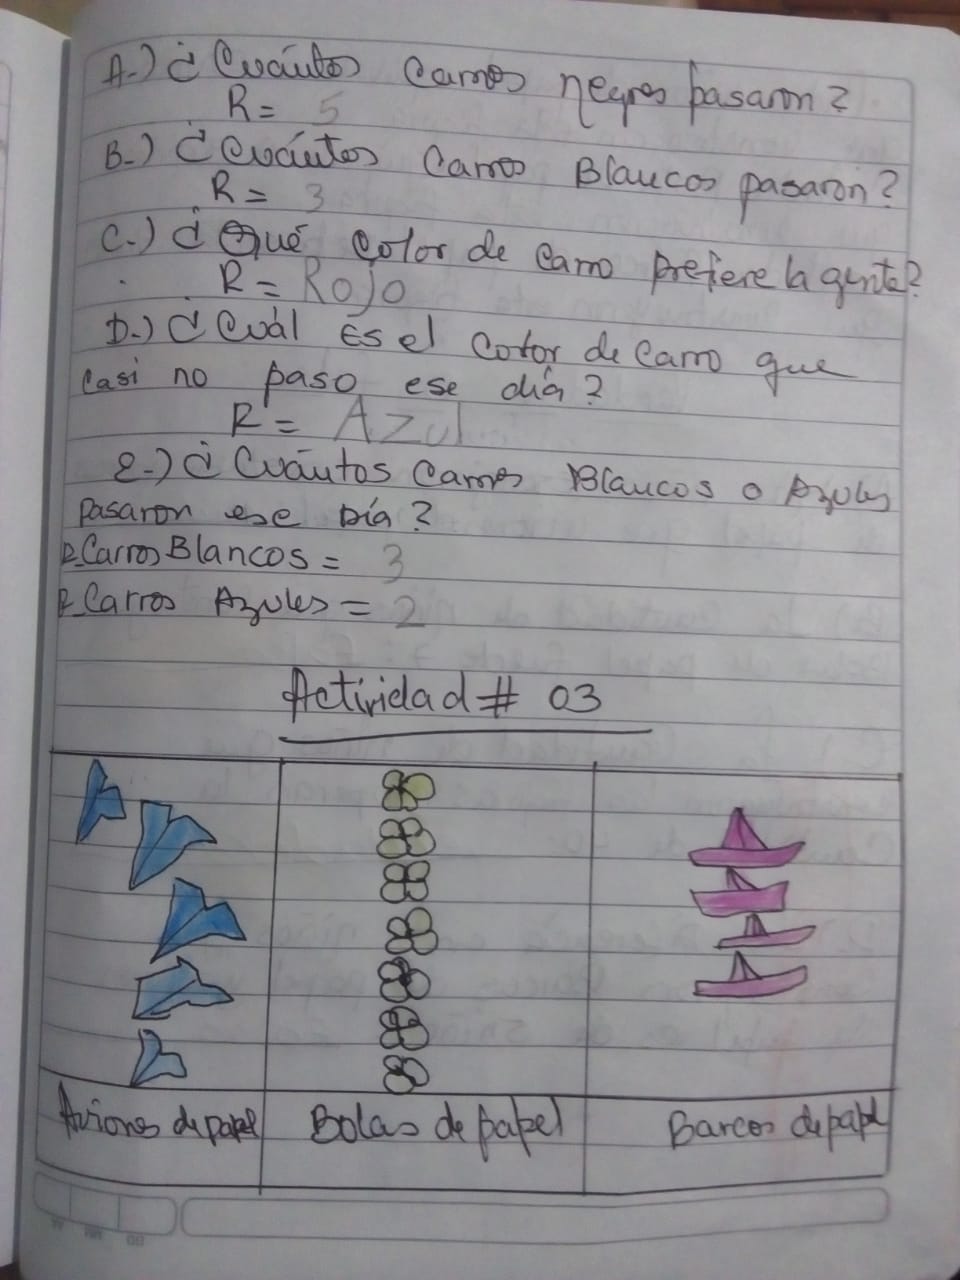 A-) ¿Cuántos Carros negros pasaron?
R= 5
B-) ¿Cuántos Carros Blancos pasaron?
R= 3
C-) ¿Qué Color de Carro prefiere la gente?
R= Rojo
D-) ¿Cuál Es el Color de Carro que
Casi no paso ese día?
R= Azul
E-) ¿Cuántos Carros Blancos o Azules
Pasaron ese Día?
R_Carros Blancos = 3
R_Carros Azules = 2
Actividad # 03
Aviones de papel Bolas de papel Barcos de papel